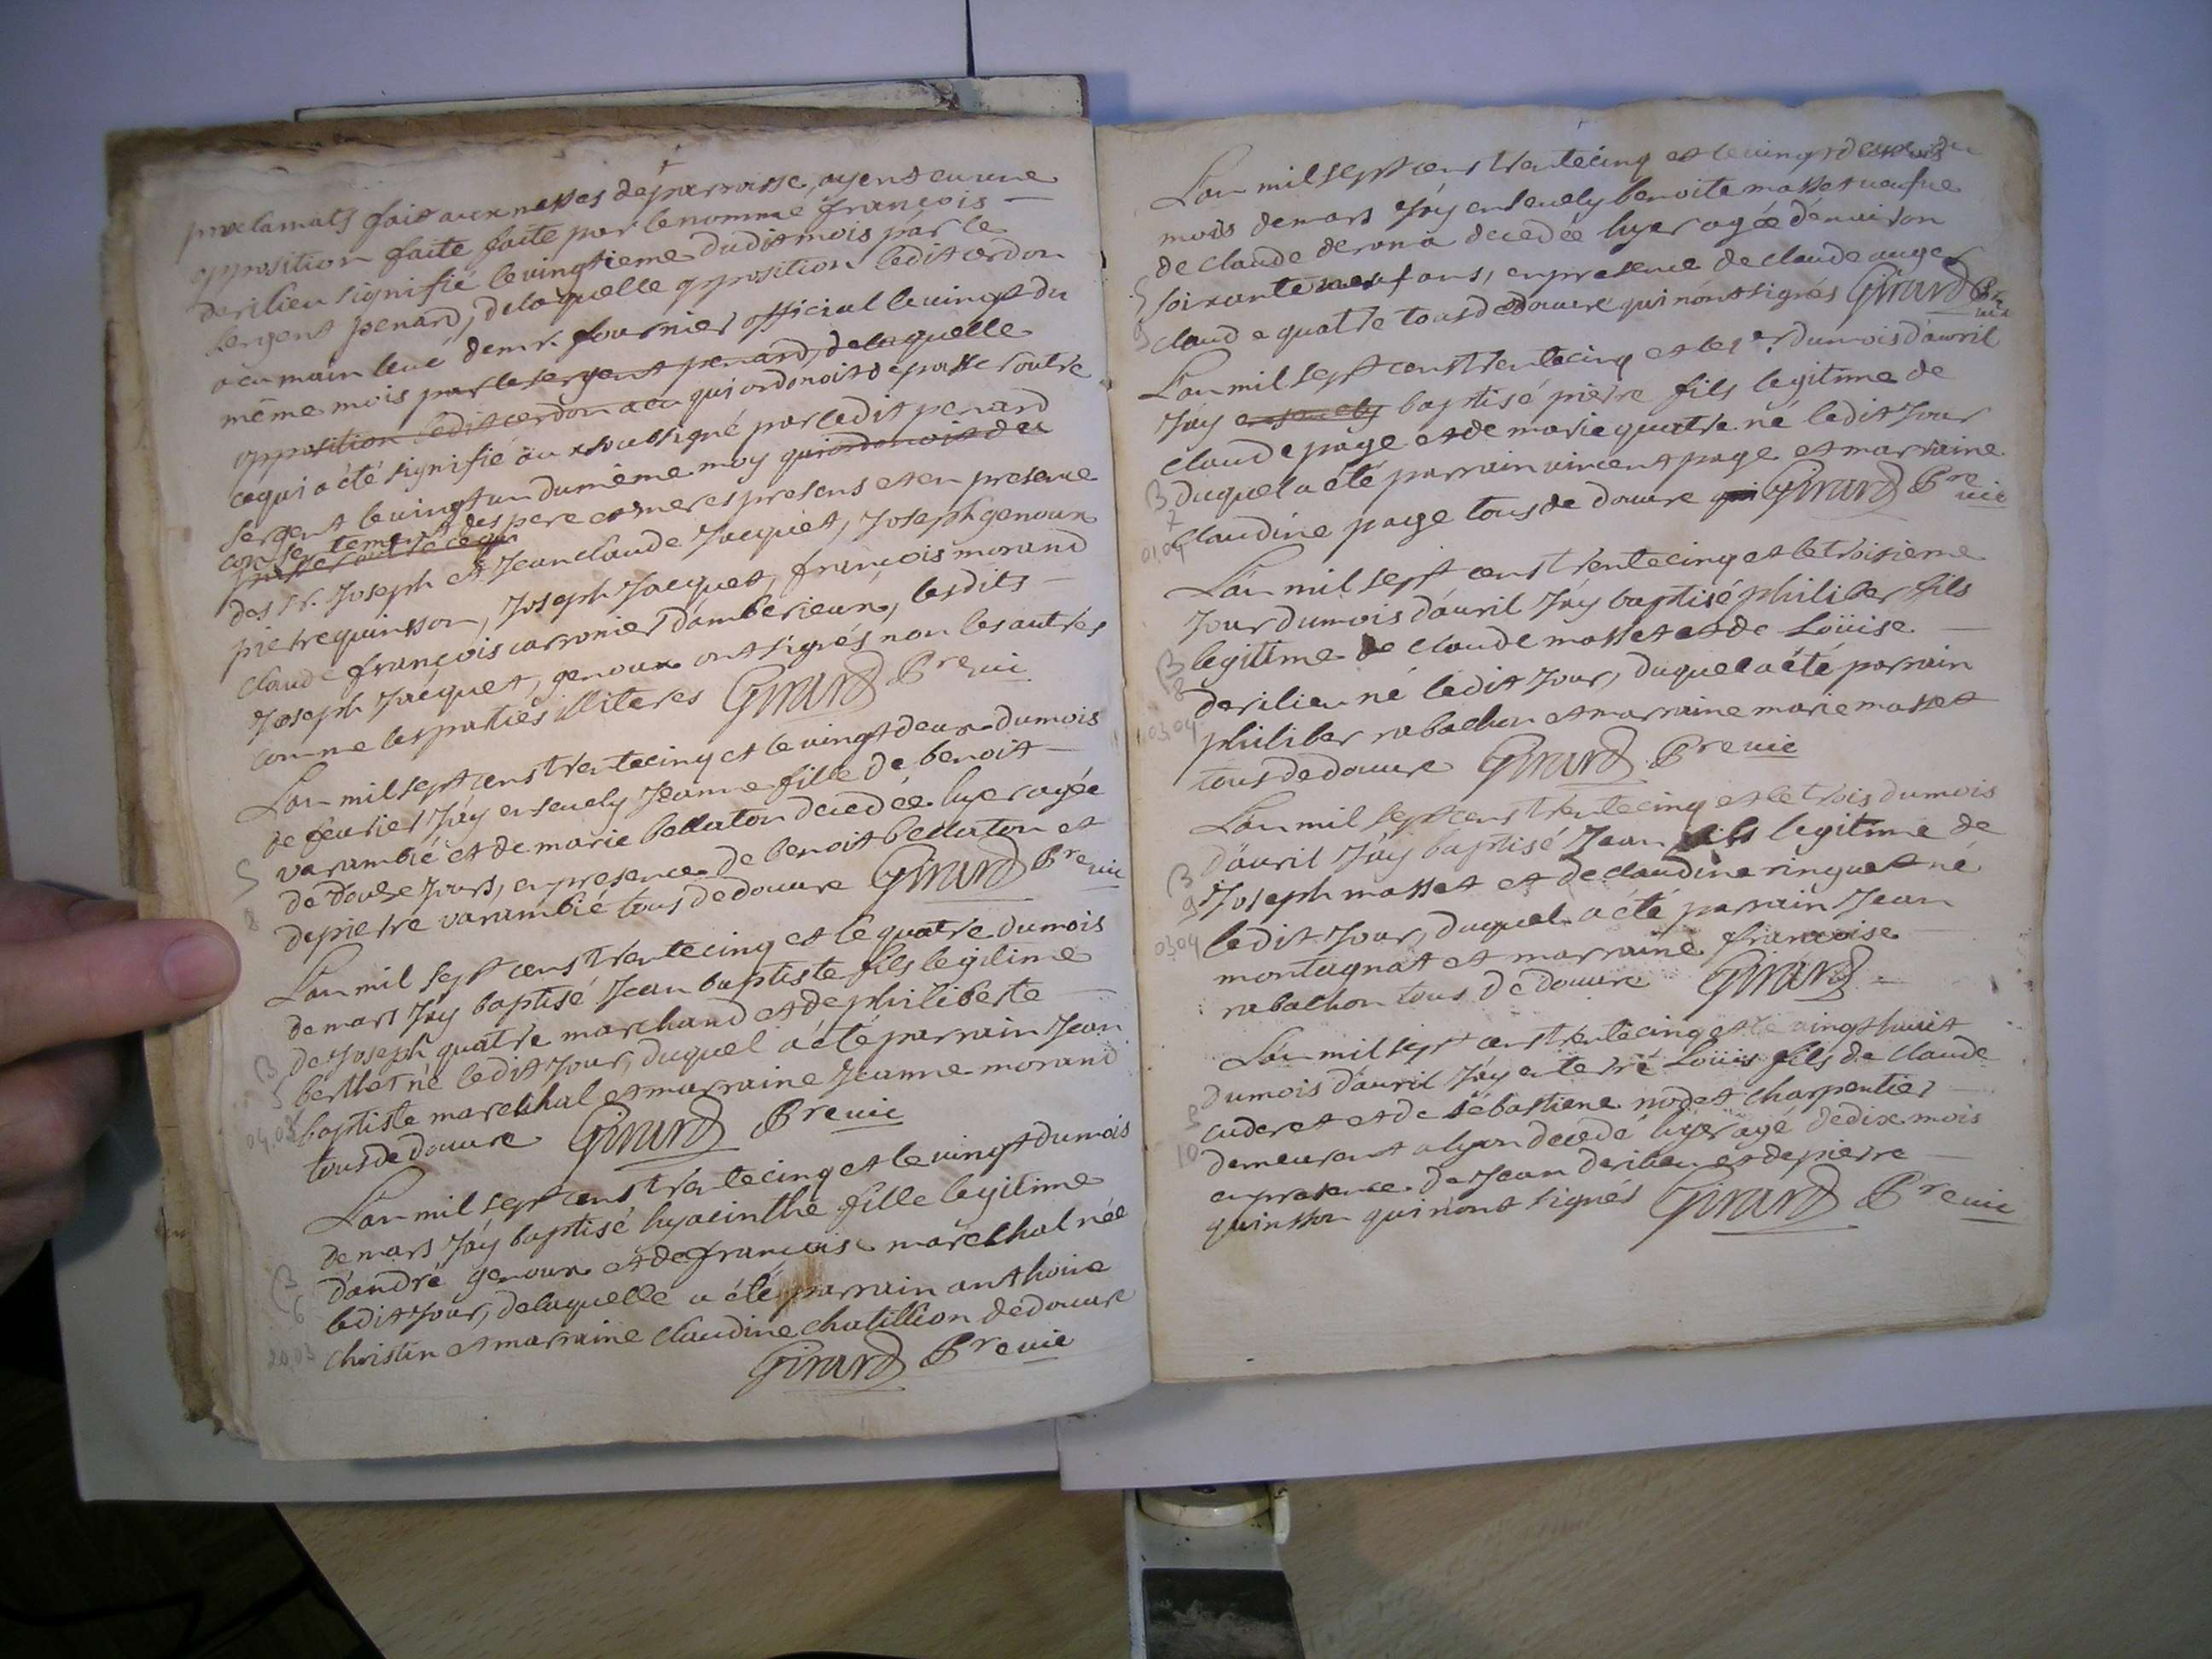 proclamats fait aux messes de parroisse, ayent eu une
opposition faite faite par le nommé françois
derilieu signifié le vingtieme dudit mois par le
sergent penard, de laquelle opposition ledit cerdon
a eu main levé de mr. fournier official le vingt du
même mois par le sergent penard, de laquelle
opposition ledit cerdon a eu qui ordonoit de passer outre
ce qui a été signifié au soussigné par ledit penard
sergent le vingt un du même moy qui ordonoit de
consentement des pere et meres presens et en presence
passer outre ce qui
des sr. Joseph et Jean claude Jacquet, Joseph genoux
pierre quinsson, Joseph Jacquet, françois morand
claude françois carronier d'amberieux, lesdits
Joseph Jacquet, genoux ont signés non les autres
comme les parties illiteres Girard Bre vic
L'an mil sept cens trente cinq et le vingt deux du mois
de feurier J'ay enseuely Jeanne fille de benoit
varambié et de marie bellaton decedée hyer agée
de douze jours, en presence de benoit bellaton et
de pierre varambié tous de douure Girard Bre vic
S
8
L'an mil sept cens trente cinq et le quatre du mois
de mars J'ay baptisé Jean baptiste fils legitime
de Joseph quatre marchand et de philiberte
berthet né ledit Jour, duquel a été parrain Jean
baptiste marechal et marraine Jeanne morand
tous de douure Girard Bre vic
B
5
04.03
L'an mil sept cens trente cinq et le vingt du mois
de mars J'ay baptisé hyacinthe fille legitime
d'andré genoux et de françoise marechal née
ledit Jour, de laquelle a été parrain anthoine
christin et marraine claudine chatillion de douure
Girard Bre vic
B
6
20.03
L'an mil sept cens trente cinq et le vingt deux du
mois de mars J'ay enseuely benoite masset veufue
de claude derona decedée hyer agée d'enuiron
soixante neuf ans, en presence de claude auger
claude quatre tous de douure qui n'ont signés Girard Bre
vic
S
9
L'an mil sept cens trente cinq et le 1er du mois d'auril
J'ay enseuely baptisé pierre fils legitime de
claude page et de marie quatre né ledit Jour
duquel a été parrain vincent page et marraine
claudine page tous de douure qui Girard Bre vic
B
7
01.04
L'an mil sept cens trente cinq et le troisieme
Jour du mois d'auril J'ay baptisé philiber fils
legitime de claude masset et de Loüise
derilieu né ledit Jour, duquel a été parrain
philiber rabachon et marraine marie masset
tous de douure Girard Bre vic
B
8
03.04
L'an mil sept cens trente cinq et le trois du mois
d'auril J'ay baptisé Jean fils legitime de
Joseph masset et de claudine ringuet né
ledit Jour, duquel a été parrain Jean
montagnat et marraine françoise
rabachon tous de douure Girard
B
9
03.04
L'an mil sept cens trente cinq et le vingt huit
du mois d'auril J'ay enterré Loüis fils de claude
cuderet et de sébastiene nodet charpentier
demeurant a lyon decedé hyer agé de dix mois
en presence de Jean derilieu et de pierre
quinsson qui n'ont signés Girard Bre vic
S
10